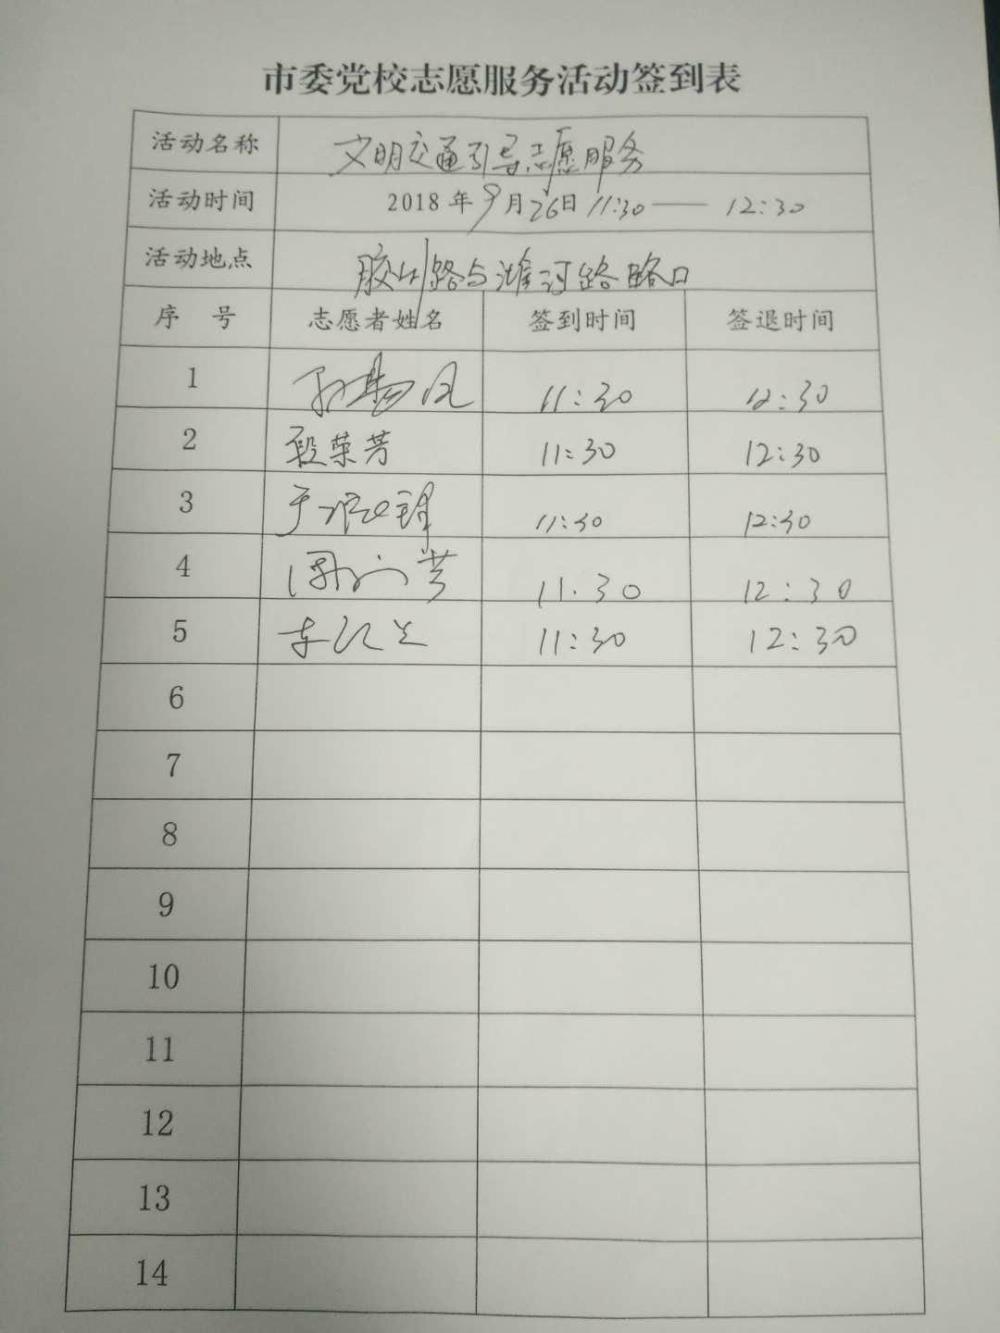 市委党校志愿服务活动签到表
活动名称 文明交通引导志愿服务
活动时间 2018年9月26日 11:30 —— 12:30
活动地点 胶州路与潍河路路口
序 号 志愿者姓名 签到时间 签退时间
1 11:30 12:30
2 段荣芳 11:30 12:30
3 11:30 12:30
4 11.30 12:30
5 11:30 12:30
6
7
8
9
10
11
12
13
14